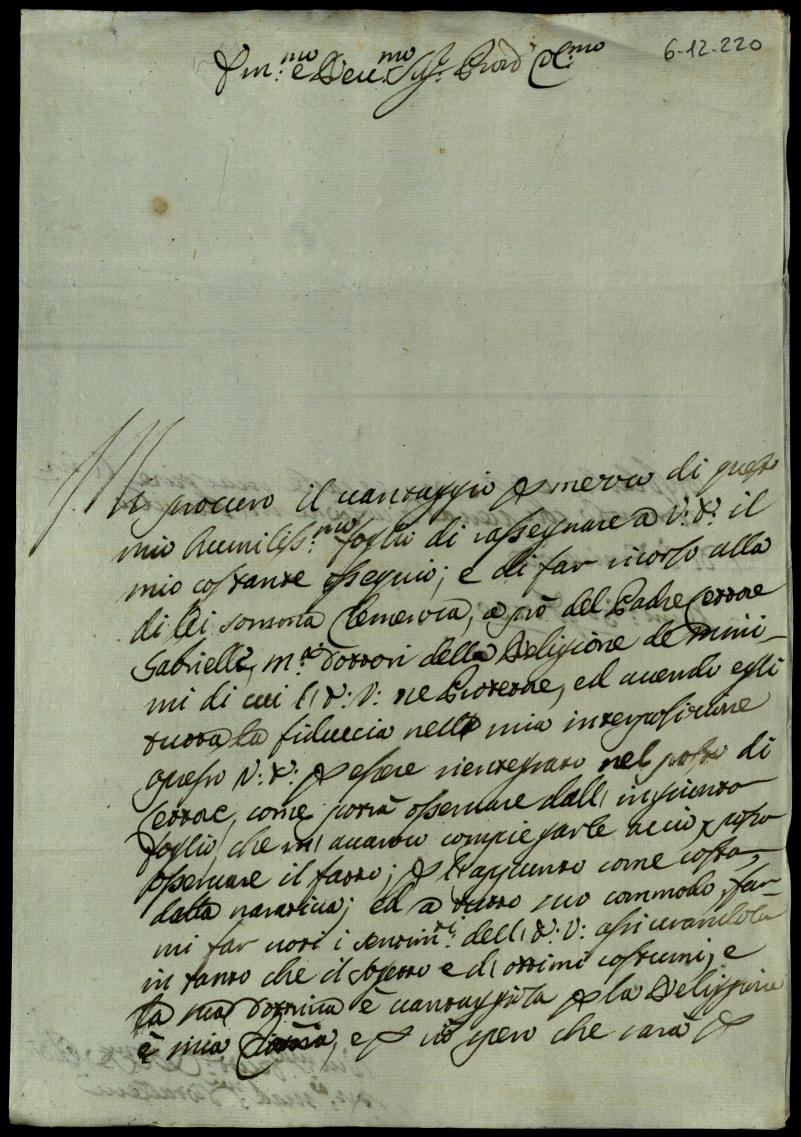 6-12-220
Em.mo e Reu.mo Sig.r Pron Col.mo
Mi procuro il uantaggio per mezzo di questo
mio humiliss.mo foglio di rassegnare a V: E: il
mio costante ossequio; e di far ricorso alla
di lei somma Clemenza, a prò del Padre
Gabrielli, della Religione de Mini-
mi di cui l' E: V: ne è ed auendo egli
tutta la fiducia nella mia interposizione
apresso V: E: per essere reintegrato nel posto di
come potrà osseruare dall' ingiunto
foglio, che mi auanzo compiegarle acciò possa
osseruare il fatto; per l'appunto come costa
dalla narratiua; ed a tutto suo commodo, far-
mi far noti i sentim.ti dell' E: V: assicurandola
in tanto che il sogetto e di ottimi costumi, e
la sua dottrina è uantaggiosa per la Religgione
è mia e per ciò spero che sarà per